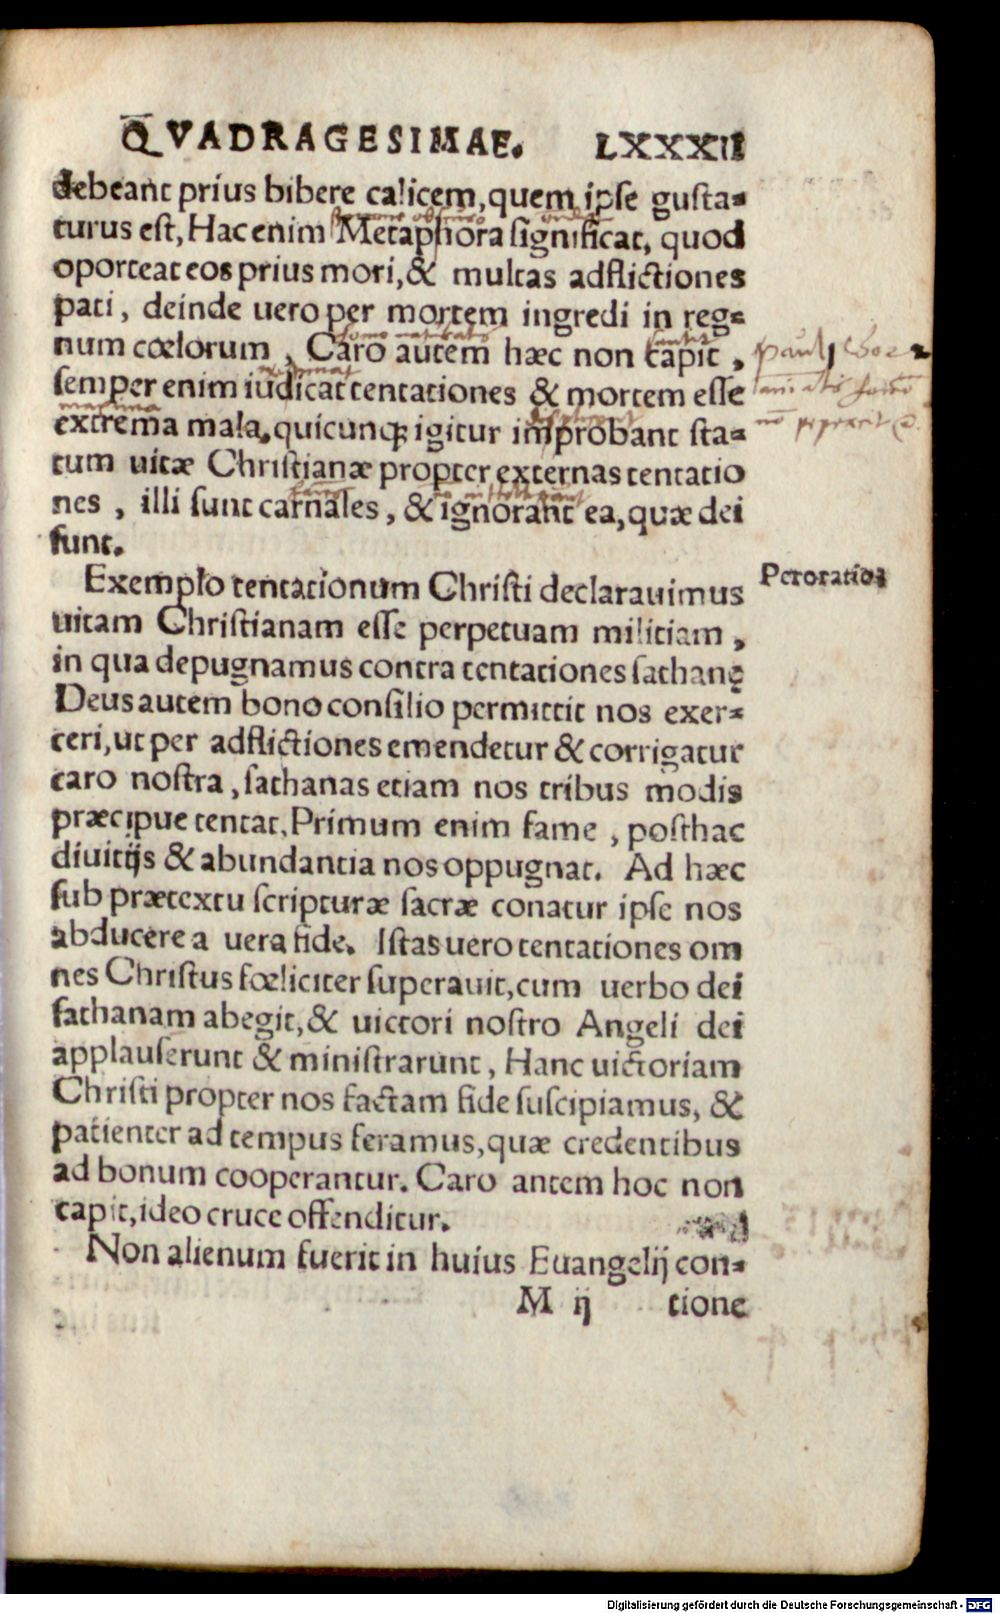 QVADRAGESIMAE. LXXXII
debeant prius bibere calicem, quem ipse gusta⸗
turus est, Hac enim Metaphora significat, quod
oporteat eos prius mori, & multas adflictiones
pati, deinde uero per mortem ingredi in reg⸗
num cœlorum, Caro autem hæc non capit,
semper enim iudicat tentationes & mortem esse
extrema mala. quicunq; igitur improbant sta⸗
tum uitæ Christianæ propter externas tentatio
nes, illi sunt carnales, & ignorant ea, quæ dei
sunt.
Peroratio.
Exemplo tentationum Christi declarauimus
uitam Christianam esse perpetuam militiam,
in qua depugnamus contra tentationes sathanę
Deus autem bono consilio permittit nos exer⸗
ceri, ut per adflictiones emendetur & corrigatur
caro nostra, sathanas etiam nos tribus modis
præcipue tentat, Primum enim fame, posthac
diuitijs & abundantia nos oppugnat. Ad hæc
sub prætextu scripturæ sacræ conatur ipse nos
abducere a uera fide. Istas uero tentationes om
nes Christus fœliciter superauit, cum uerbo dei
sathanam abegit, & uictori nostro Angeli dei
applauserunt & ministrarunt, Hanc uictoriam
Christi propter nos factam fide suscipiamus, &
patienter ad tempus feramus, quæ credentibus
ad bonum cooperantur. Caro antem hoc non
capit, ideo cruce offenditur.
Non alienum fuerit in huius Euangelij con⸗
M ij tione
Digitalisierung gefördert durch die Deutsche Forschungsgemeinschaft - DFG